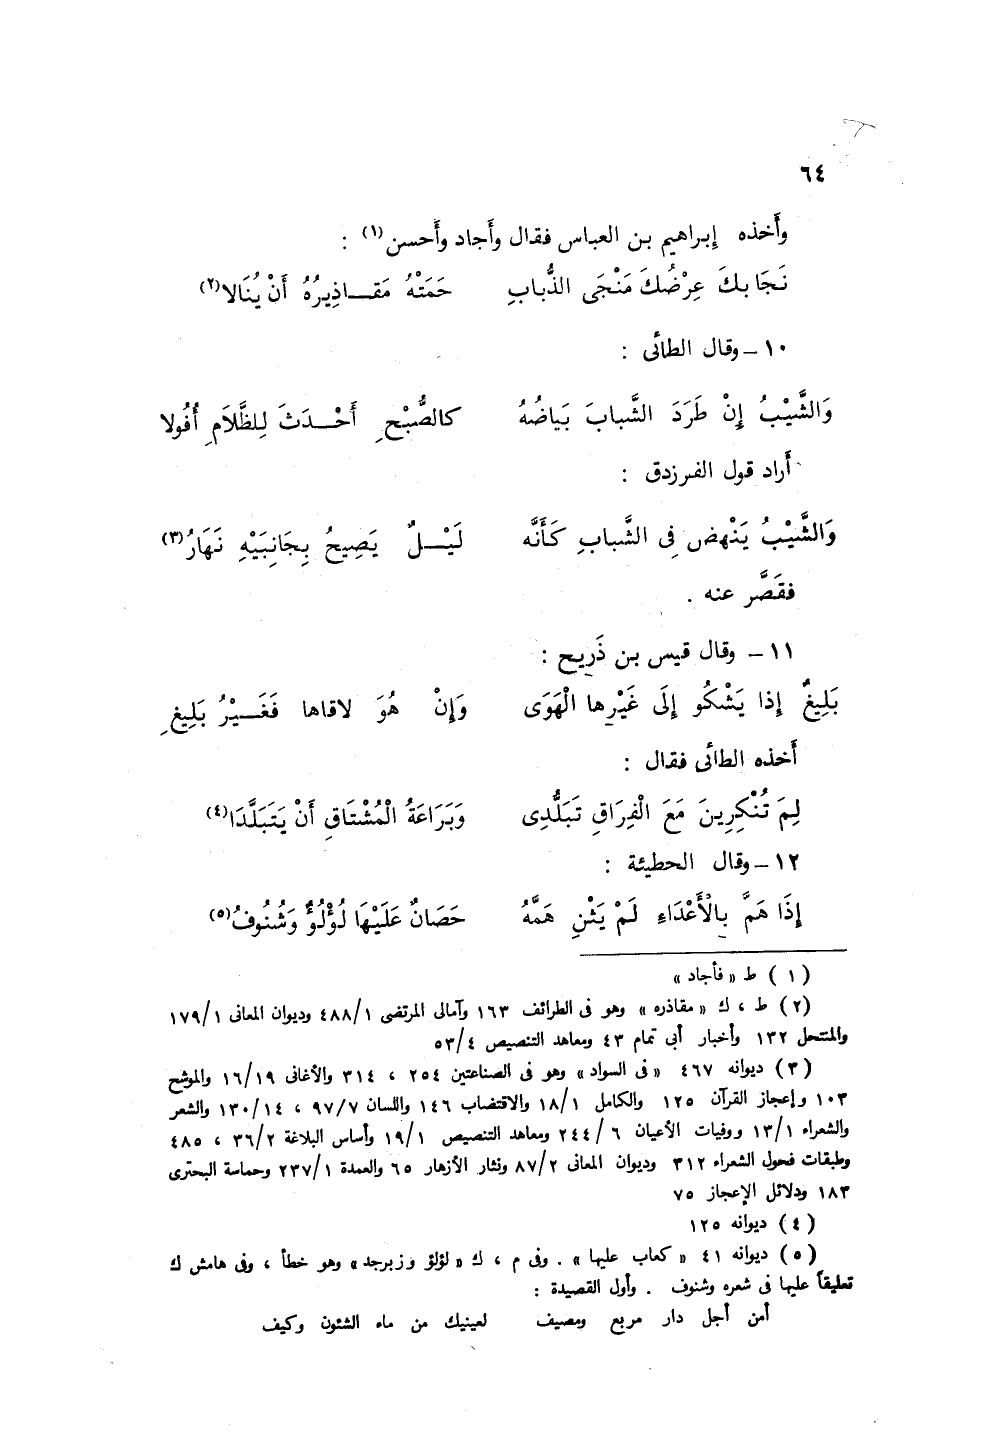 ٦٤
وأَخذه إبراهيم بن العباس فقال وأَجاد وأَحسن(١) :
نَجَا بكَ عِرْضُكَ مَنْجَى الذُّبابِ حَمَتْهُ مَقَـاذِيرُهُ أَنْ يُنَالا(٢)
١٠ – وقال الطائى :
وَالشَّيْبُ إِنْ طَرَدَ الشَّبابَ بَياضُهُ كالصُّبْحِ أَحْـدَثَ لِلظَّلَامِ أُفُولا
أَراد قول الفرزدق :
وَالشَّيْبُ يَنْهض فِى الشَّبابِ كَأَنَّه لَيْـلٌ يَصِيحُ بِجَانِبَيْهِ نَهَارُ(٣)
فقَصَّر عنه .
١١ – وقال قيس بن ذَرِيح :
بَلِيغٌ إِذا يَشْكُو إِلَى غَيْرِها الْهَوَى وَإِنْ هُوَ لاقاها فَغَـيْرُ بَلِيغِ
أَخذه الطائى فقال :
لِمَ تُنْكِرِينَ مَعَ الْفِرَاقِ تَبَلُّدِى وَبَرَاعَةُ الْمُشْتَاقِ أَنْ يَتَبَلَّدَا(٤)
١٢ – وقال الحطيئة :
إِذَا هَمَّ بِالْأَعْدَاءِ لَمْ يَثْنِ هَمَّهُ حَصَانٌ عَلَيْهَا لُؤْلُؤٌ وَشُنُوفُ(٥)
(١) ط « فأجاد »
(٢) ط ، ك « مقاذره » وهو فى الطرائف ١٦٣ وآمالى المرتضى ٤٨٨/١ وديوان المعانى ١٧٩/١
والمنتحل ١٣٢ وأخبار أبى تمام ٤٣ ومعاهد التنصيص ٥٣/٤
(٣) ديوانه ٤٦٧ « فى السواد » وهو فى الصناعتين ٢٥٤ ، ٣١٤ والأغانى ١٦/١٩ والموشح
١٠٣ وإعجاز القرآن ١٢٥ والكامل ١٨/١ والاقتضاب ١٤٦ واللسان ٩٧/٧ ، ١٣٠/١٤ والشعر
والشعراء ١٣/١ ووفيات الأعيان ٢٤٤/٦ ومعاهد التنصيص ١٩/١ وأساس البلاغة ٣٦/٢ ، ٤٨٥
وطبقات فحول الشعراء ٣١٢ وديوان المعانى ٨٧/٢ ونثار الأزهار ٦٥ والعمدة ٢٣٧/١ وحماسة البحترى
١٨٣ ودلائل الإعجاز ٧٥
(٤) ديوانه ١٢٥
(٥) ديوانه ٤١ « كعاب عليها » . وفى م ، ك « لؤلؤ وزبرجد » وهو خطأ ، وفى هامش ك
تعليقاً عليها فى شعره وشنوف . وأول القصيدة :
أمن أجل دار مربع ومصيف لعينيك من ماء الشئون وكيف